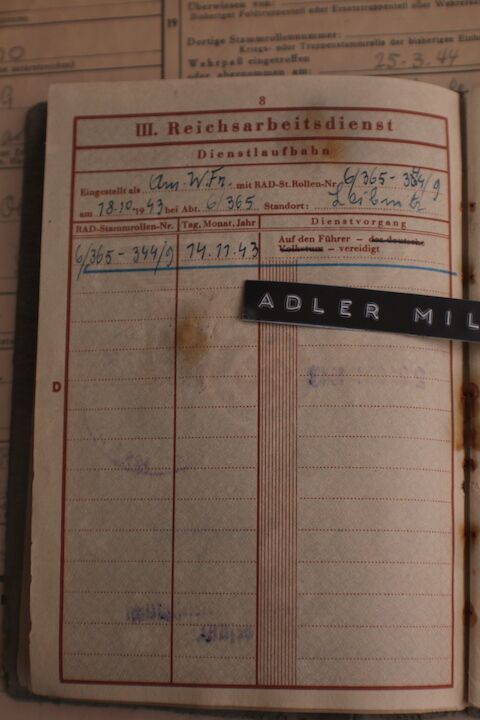 Überwiesen von:
Bisheriger Feldtruppenteil oder Ersatztruppenteil oder Wehrersatz
19
Dortige Stammrollennummer:
Kriegs- oder Truppenstammrolle der bisherigen Einheit
Wehrpaß eingetroffen
25.3.44
oder abgenommen am:
8
III. Reichsarbeitsdienst
Dienstlaufbahn
Eingestellt als mit RAD-St.Rollen-Nr. 6/365-344/g
am 18.10. 1943 bei Abt. 6/365 Standort: Leibnitz
RAD-Stammrollen-Nr. Tag, Monat, Jahr Dienstvorgang
6/365-344/g 14.11.43 Auf den Führer – das deutsche
Volkstum – vereidigt
ADLER MIL
D